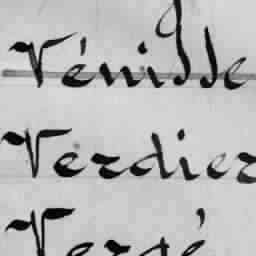 Vénisse
Verdier
Vergé